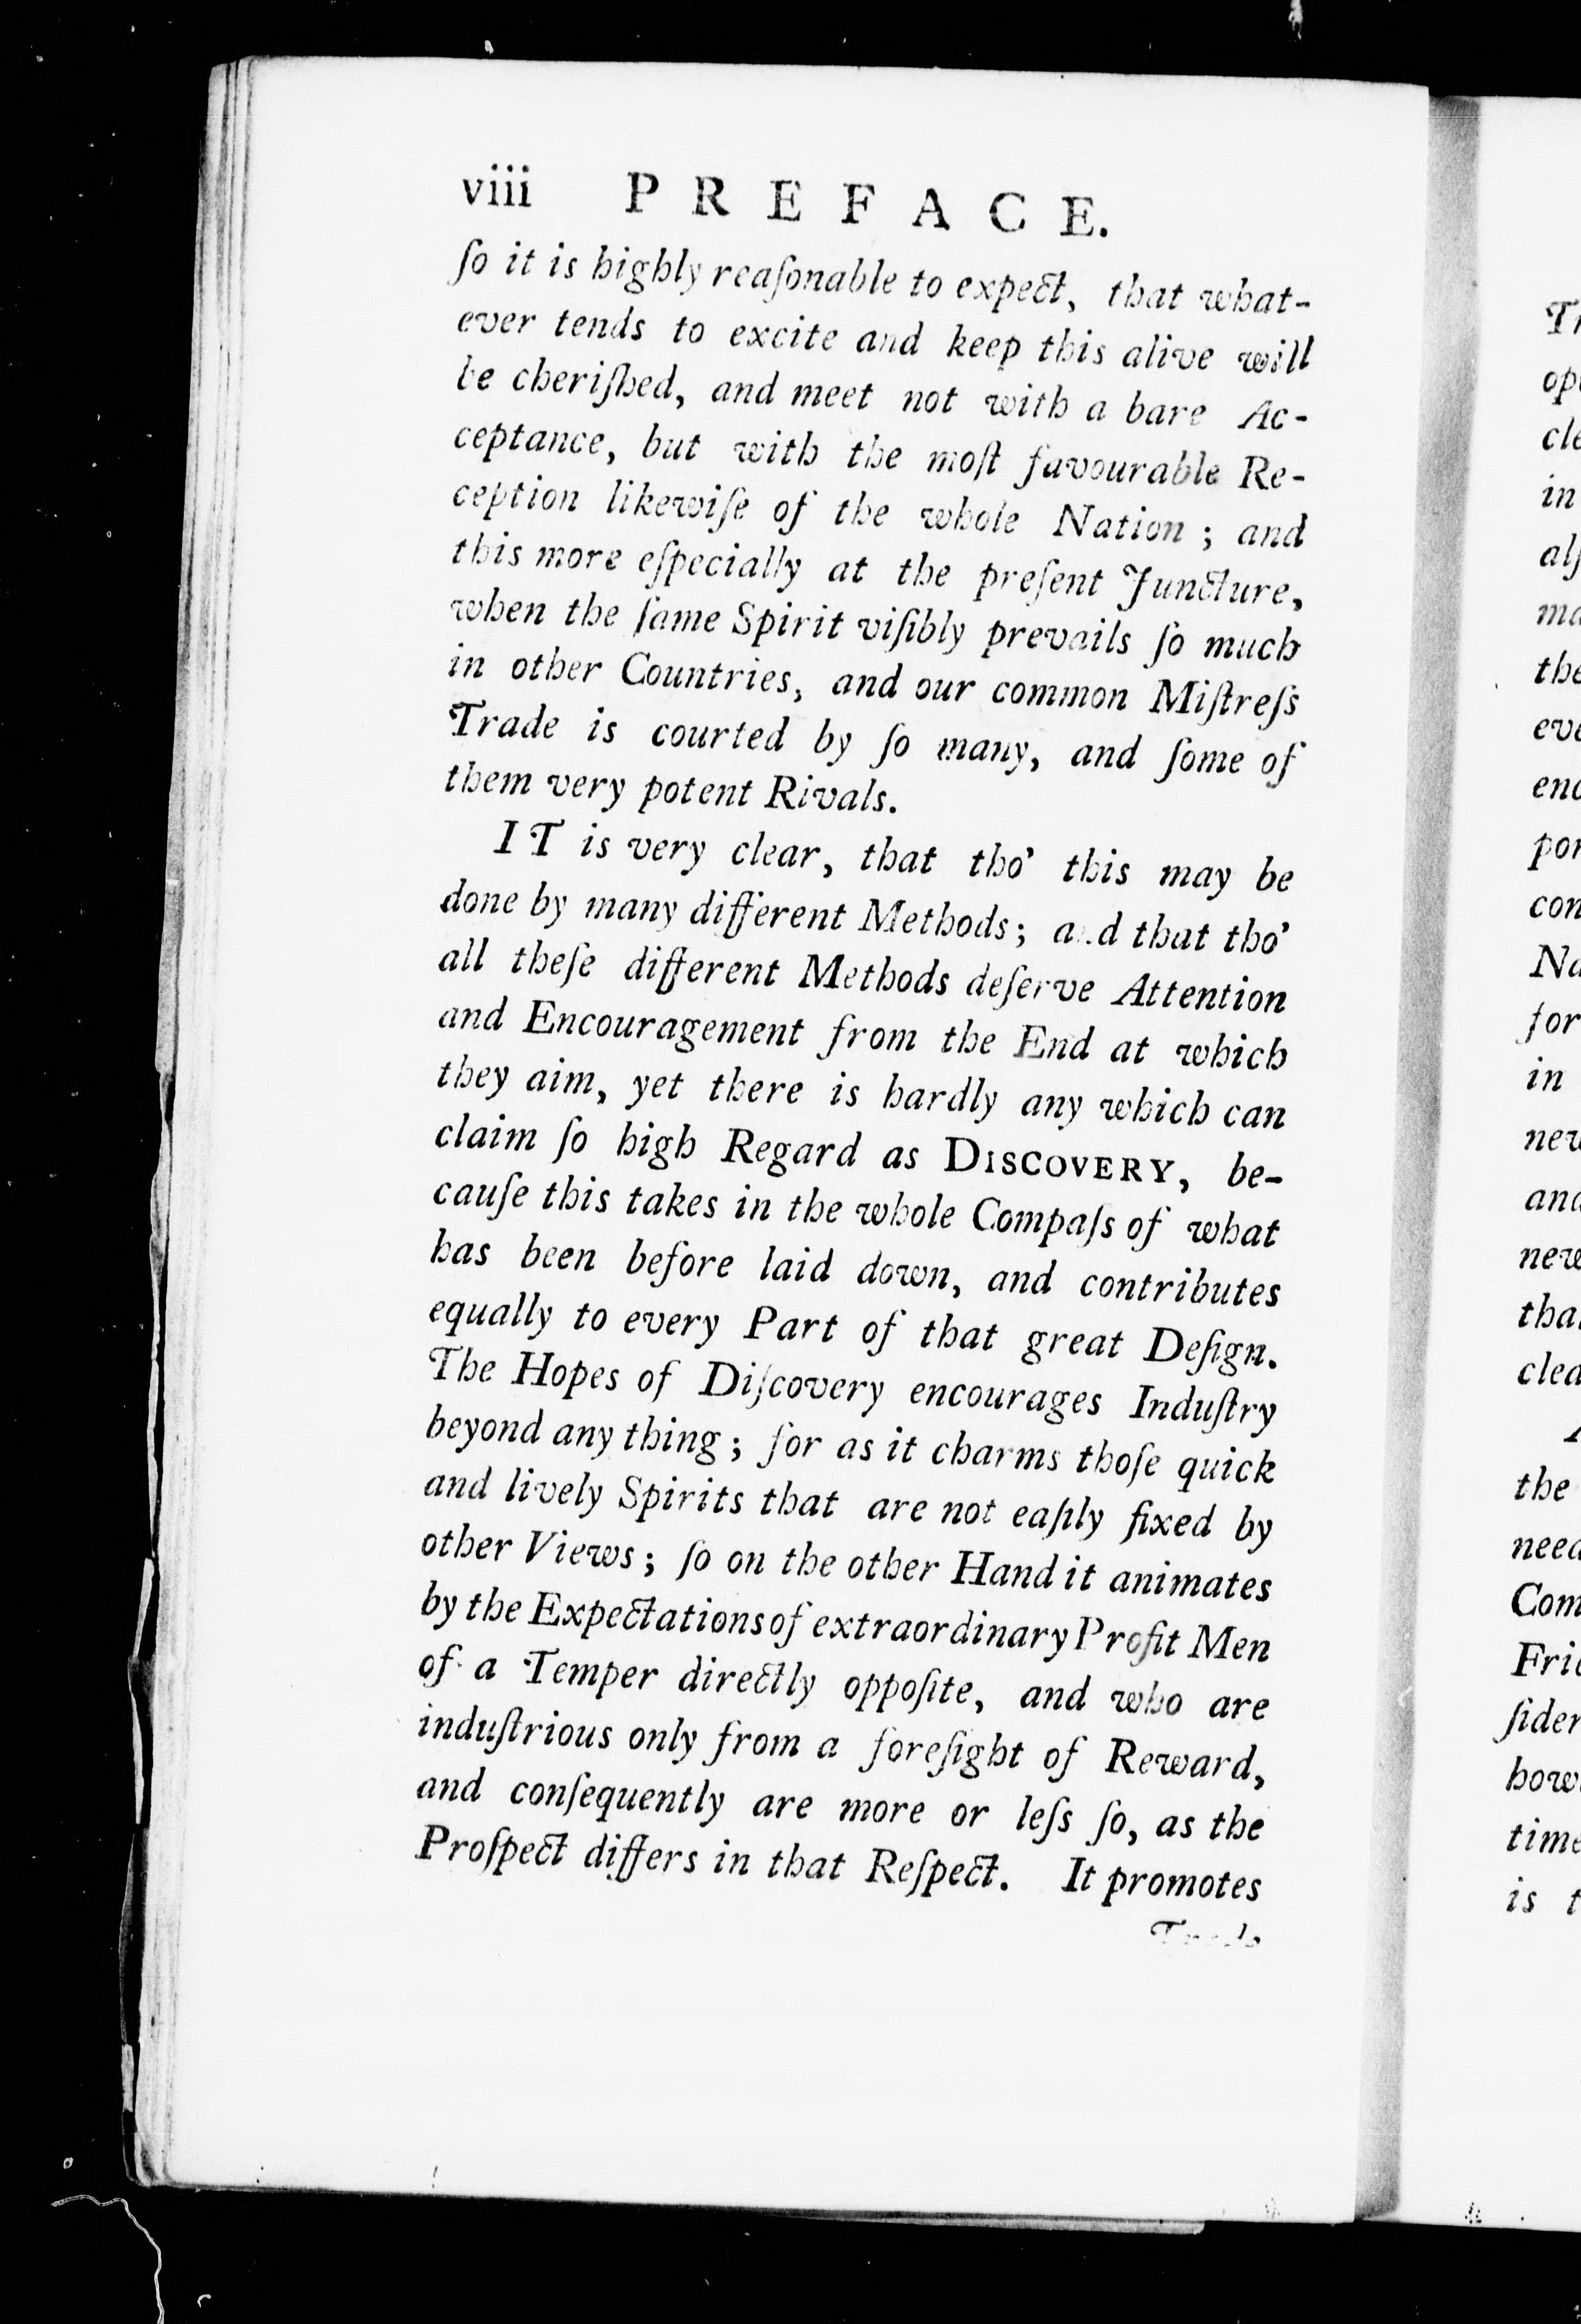 viii PREFACE.
ſo it is highly reaſonable to expect, that what-
ever tends to excite and keep this alive will
be cheriſhed, and meet not with a bare Ac-
ceptance, but with the moſt favourable Re-
ception likewiſe of the whole Nation; and
this more eſpecially at the preſent Juncture,
when the ſame Spirit viſibly prevails ſo much
in other Countries, and our common Miſtreſs
Trade is courted by ſo many, and ſome of
them very potent Rivals.
IT is very clear, that tho' this may be
done by many different Methods; and that tho'
all theſe different Methods deſerve Attention
and Encouragement from the End at which
they aim, yet there is hardly any which can
claim ſo high Regard as DISCOVERY, be-
cauſe this takes in the whole Compaſs of what
has been before laid down, and contributes
equally to every Part of that great Deſign.
The Hopes of Diſcovery encourages Induſtry
beyond any thing; for as it charms thoſe quick
and lively Spirits that are not eaſily fixed by
other Views; ſo on the other Hand it animates
by the Expectations of extraordinary Profit Men
of a Temper directly oppoſite, and who are
induſtrious only from a foreſight of Reward,
and conſequently are more or leſs ſo, as the
Proſpect differs in that Reſpect. It promotes
Tr
op
cle
in
alſ
ma
the
eve
enc
por
con
Na
for
in
new
and
new
tha
clea
the
need
Com
Frie
ſider
how
time
is t